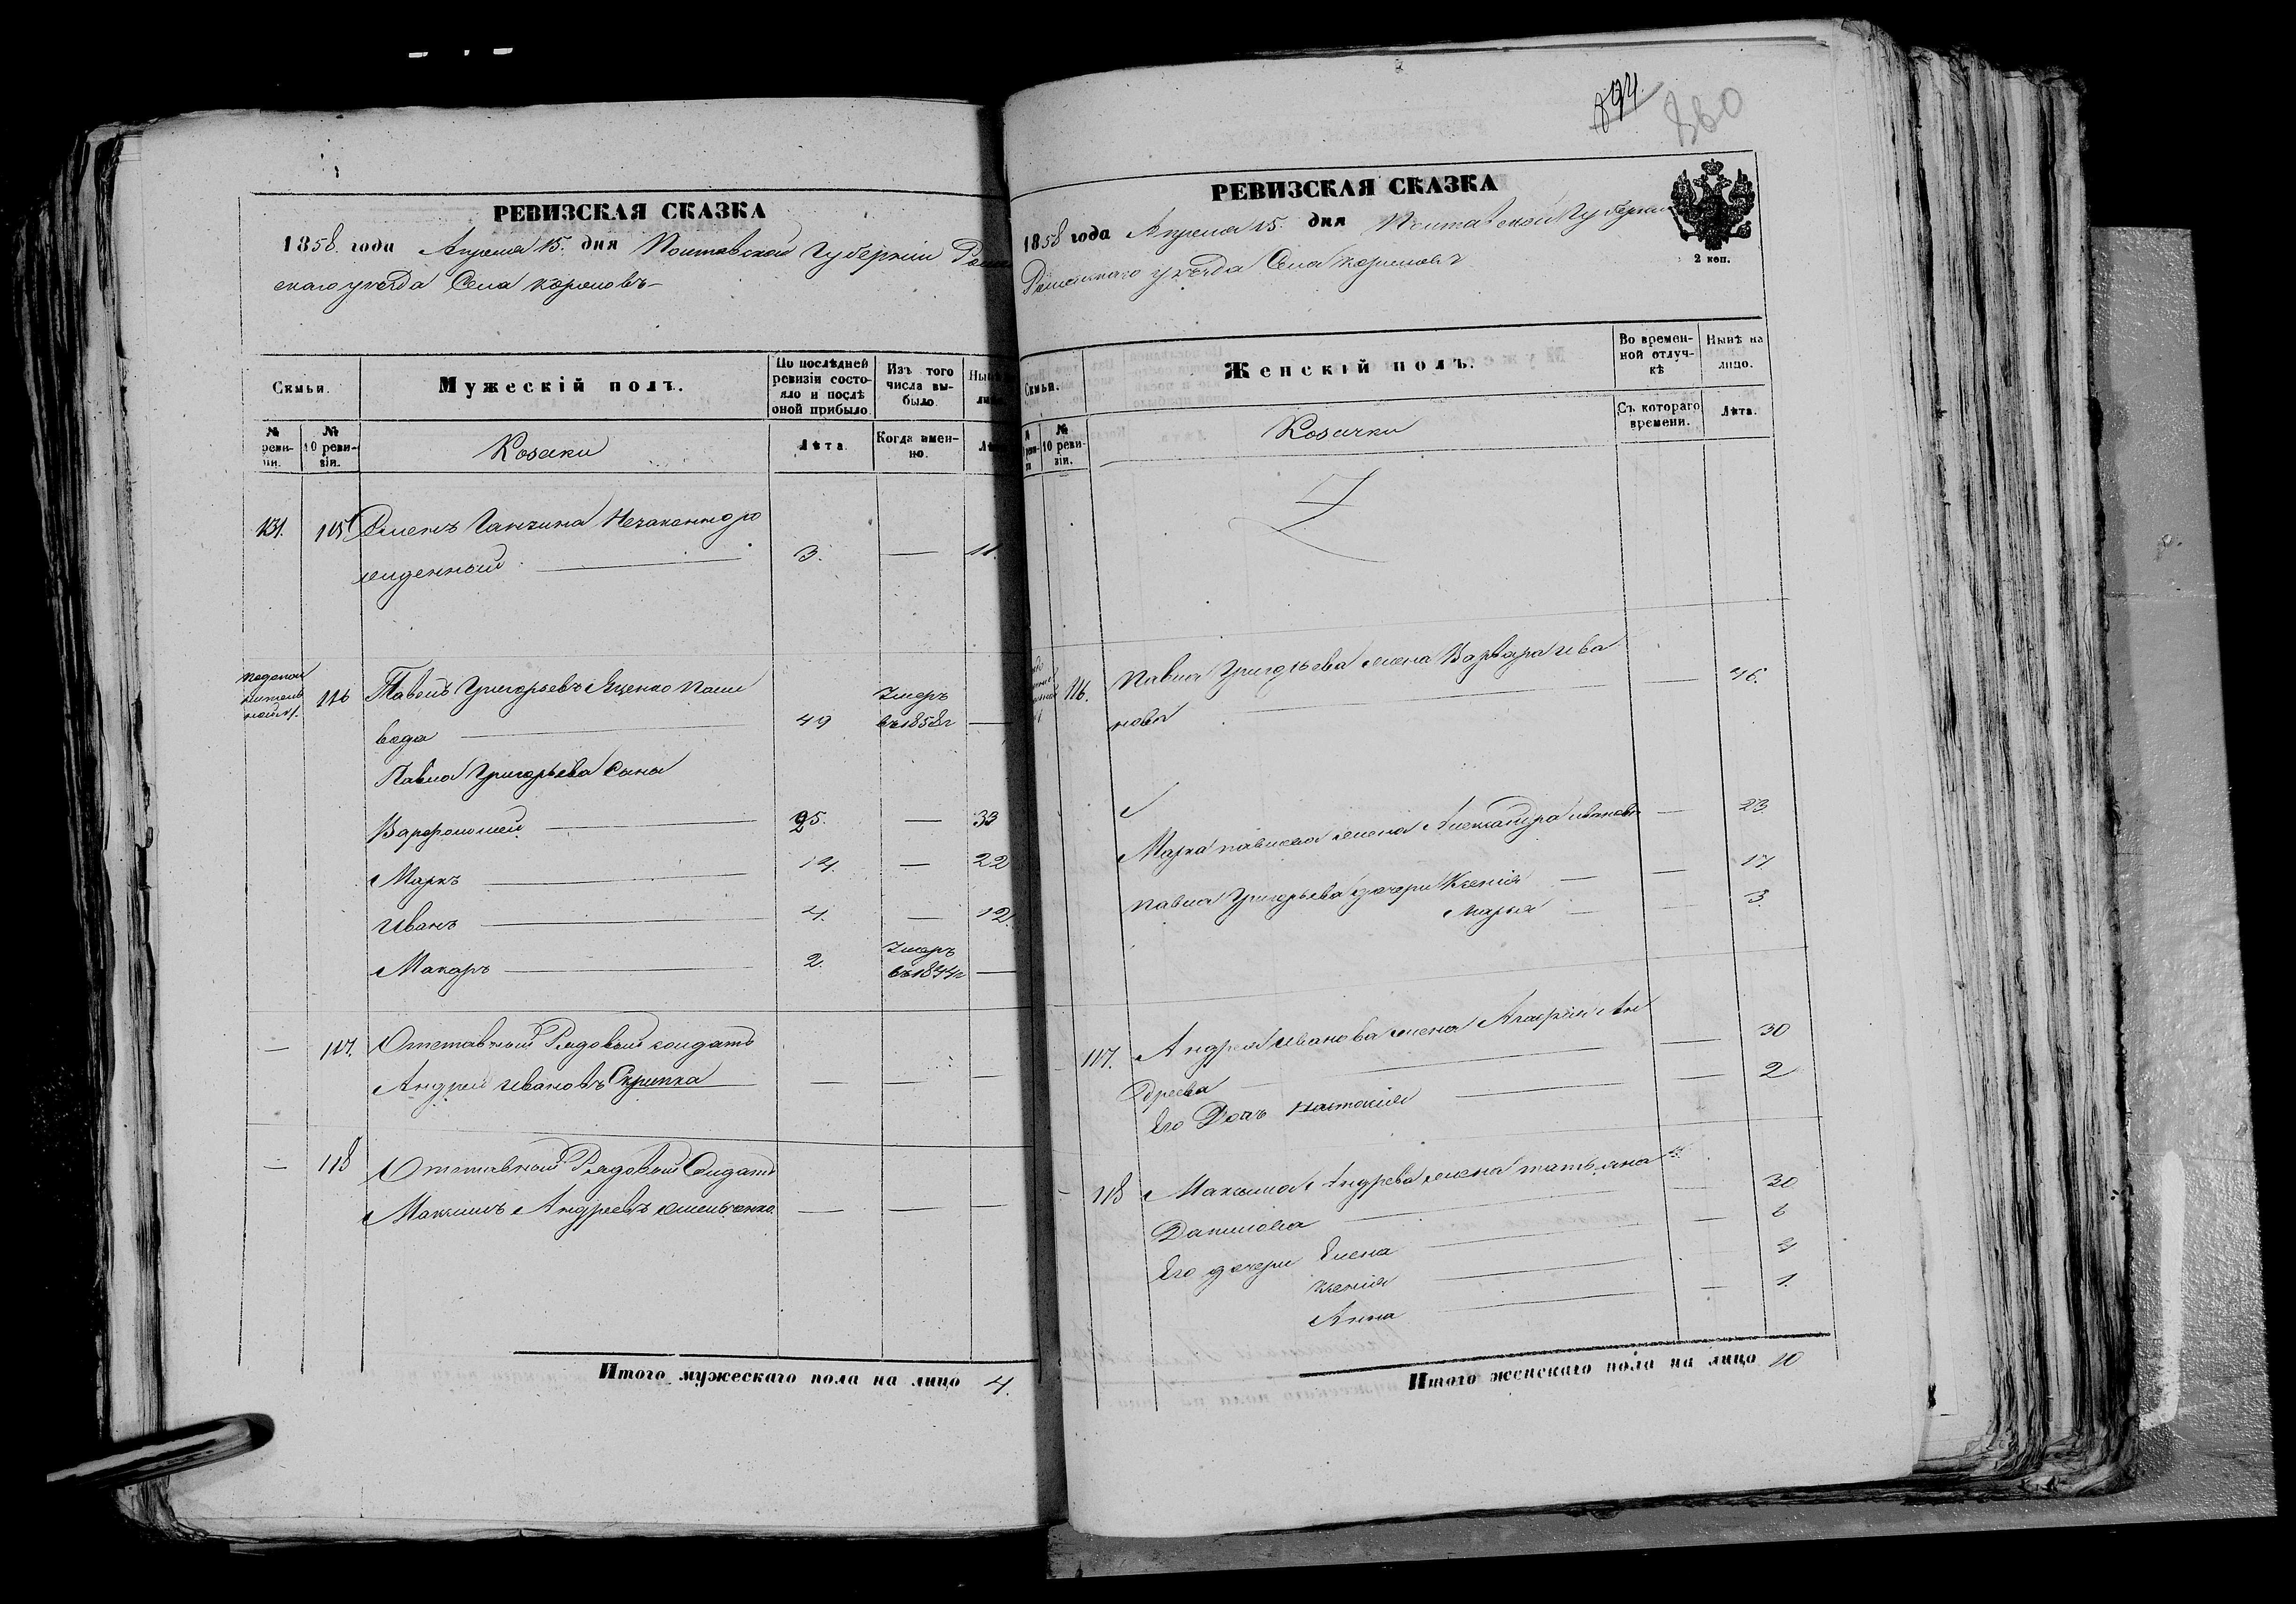 РЕВИЗСКАЯ СКАЗКА
1858. года Апреля 15. дня Полтавской Губерніи
скаго уезда Села
Скмьи.
Мужескій полъ.
По послѣдней ревизіи состояло и послѣ оной прибыло
Изъ того числа выбыло.
№ ревизіи.
№ 10 ревизіи.
Козаки
Лѣта
Когда именно.
131.
115
Незаконноро
жденный
3.
11.
116
Павелъ Григорьевъ Яценко
вода
49
Умеръ
въ 1858г
Павла Григорьева Сыны
Варфоломей
25.
33
Маркъ
14.
22
Иванъ
4.
12.
Макаръ
2.
Умеръ
въ 1854г
117.
Отставной Рядовый солдатъ
Андрей Ивановъ Скрипка
118
Отставной Рядовый Солдатъ
Максимъ Андреевъ Омельченко
Итого мужескаго пола на лицо 4.
894.
860
РЕВИЗСКАЯ СКАЗКА
1858 года Апреля 15. дня Полтавской Губерніи
2 коп.
уезда Села
Скмьи.
Женскій полъ.
Во временной отлучкѣ
Нынѣ на лицо.
№ 10 ревизіи.
Козачки
Съ котораго времени.
Лѣта.
116.
Павла Григорьева жена Варвара Ива
нова
46.
Марка Павлова жена Александра Иванова
23.
Павла Григорьева дочери Ксенія
17.
Марья
3.
117.
Андрея Иванова жена Агафия Ан
дреева
30
Его Дочь Настасия
2
118
Максима Андреева жена Татьяна
Данилова
30
Его дочери Елена
6
Ксенія
Анна
1.
Итого женскаго пола на лицо 10